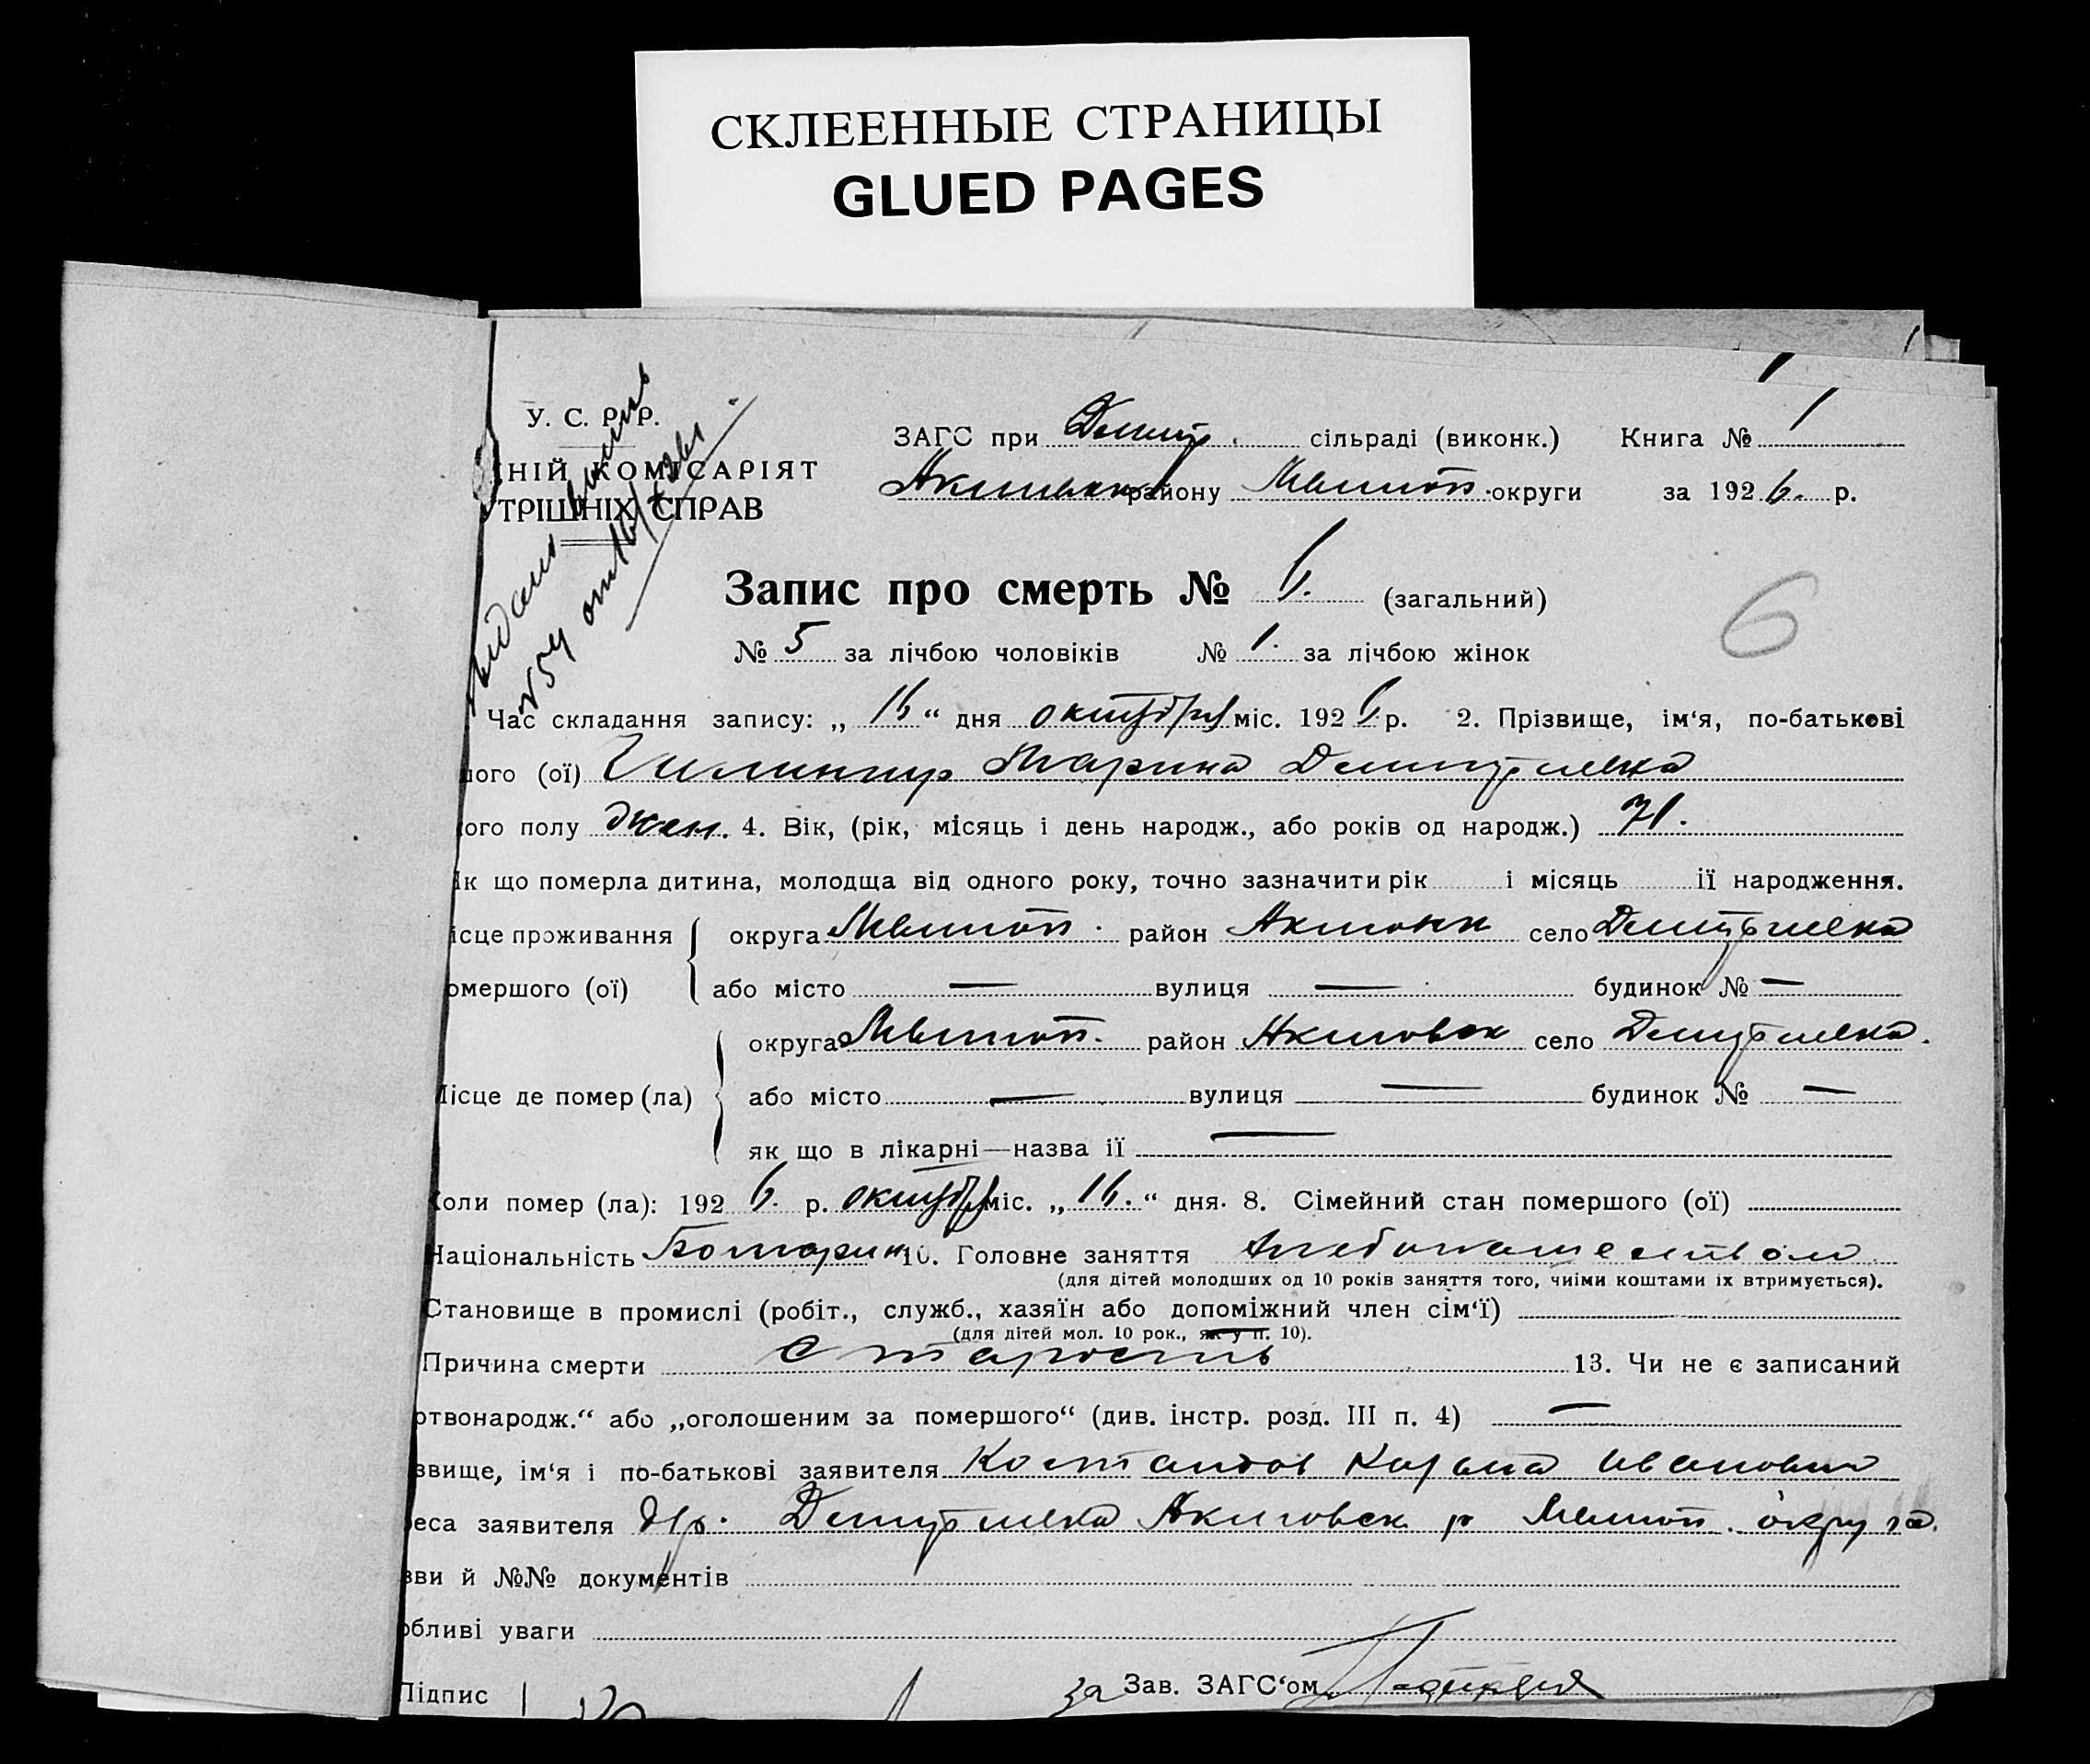 СКЛЕЕННЫЕ СТРАНИЦЫ
GLUED PAGES
У. С. Р. Р.
ЗАГС при Дмитр. сільраді (виконк.) Книга № 1
НІЙ КОМІСАРІЯТ
району Мелитоп. округи за 1926. р.
ТРІШНІХ СПРАВ
Запис про смерть № 6. (загальний)
6
№ 5 за лічбою чоловіків № 1. за лічбою жінок
№ 54 от 16/X 26 г
Час складання запису: „16“ дня октября міс. 1926 р. 2. Прізвище, ім‘я, по-батькові
ого (ої) Чилингир Марина Дмитриевна
ого полу жен. 4. Вік, (рік, місяць і день народж., або років од народж.) 71.
як що померла дитина, молодща від одного року, точно зазначити рік і місяць її народження.
ісце проживання округа Мелитоп. район село Дмитриевка
омершого (ої) або місто — вулиця — будинок № —
округа Мелитоп. район Акимовск село Дмитриевка.
ісце де помер (ла) або місто — вулиця — будинок № —
як що в лікарні—назва її —
Коли помер (ла): 1926. р. октября міс. „16.“ дня. 8. Сімейний стан помершого (ої)
Національність Болгарин 10. Головне заняття хлебопашеством
(для дітей молодших од 10 років заняття того, чиїми коштами їх втримується).
Становище в промислі (робіт., служб., хазяїн або допоміжний член сім‘ї)
(для дітей мол. 10 рок., як у п. 10).
Причина смерти старость 13. Чи не є записаний
ртвонародж.“ або „оголошеним за помершого“ (див. інстр. розд. III п. 4) —
звище, ім‘я і по-батькові заявителя Иванович
еса заявителя Дмитриевка Акимовск р Мелитоп. округа.
зви й №№ документів
обливі уваги
Підпис за Зав. ЗАГС‘ом